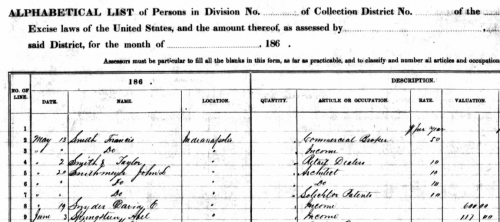 ALPHABETICAL LIST of Persons in Division No. of Collection District No. of the
Excise laws of the United States, and the amount thereof, as assessed by
said District, for the month of , 186 .
Assessors must be particular to fill all the blanks in this form, as far as practicable, and to classify and number all articles and occupation
NO. OF LINE. 186 . DESCRIPTION.
DATE. NAME. LOCATION. QUANTITY. ARTICLE OR OCCUPATION. RATE. VALUATION.
1 $ per year
2 May 13 Smith Francis Indianapolis Commercial Broker 50
3 " " Do " Income
4 " 2 Smith & Taylor " Retail Dealers 10
5 " 20 Smithmeyer John L " Architect 10
6 " " Do " Do 10
7 " " Do " Solicitor Patents 10
8 " 19 Snyder " Income
9 June 3 " Income